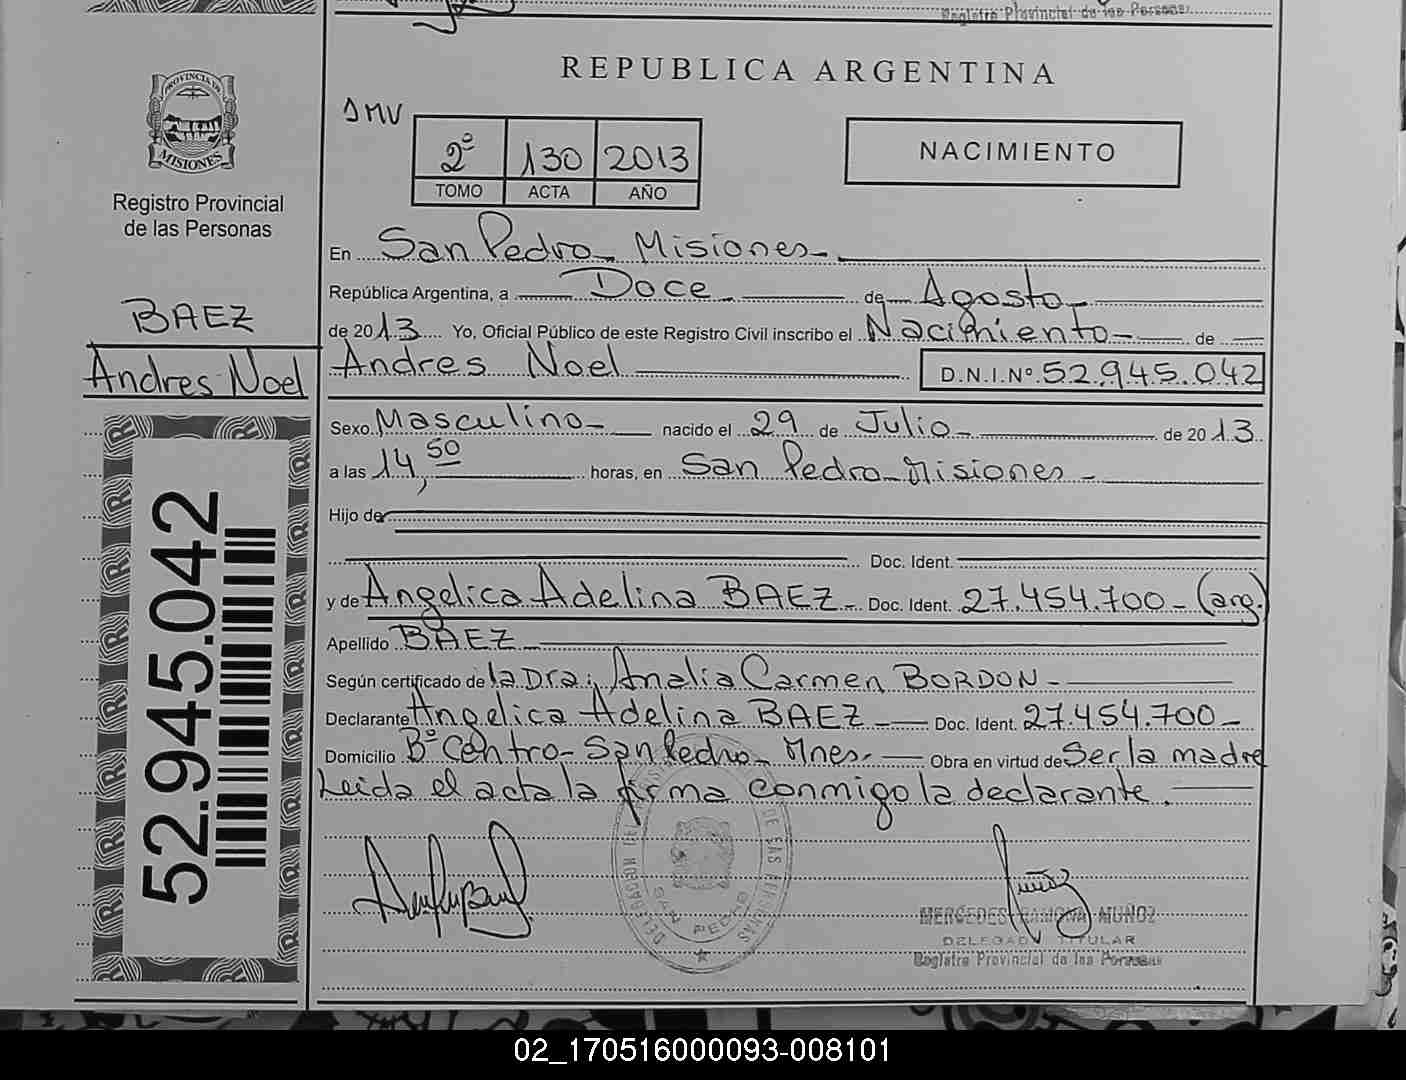 Registro Provincial de las Personas
REPUBLICA ARGENTINA
PROVINCIA DE
MISIONES
Registro Provincial
de las Personas
BAEZ
Andres Noel
52.945.042
JMV
2º 130 2013
TOMO ACTA AÑO
NACIMIENTO
En San Pedro - Misiones -
República Argentina, a Doce de Agosto
de 2013 Yo, Oficial Público de este Registro Civil inscribo el Nacimiento - de
Andres Noel D.N.I.Nº. 52.945.042
Sexo Masculino - nacido el 29 de Julio - de 2013
a las 14,50 horas, en San Pedro - Misiones -
Hijo de
Doc. Ident.
y de Angelica Adelina BAEZ - Doc. Ident. 27.454.700 - (arg.)
Apellido BAEZ -
Según certificado de la Dra: Analia Carmen BORDON -
Declarante Angelica Adelina BAEZ - Doc. Ident. 27.454.700 -
Domicilio Bº Centro - San Pedro - Mnes. - Obra en virtud de Ser la madre
Leida el acta la firma conmigo la declarante.
SAN PEDRO
MERCEDES RAMONA MUÑOZ
DELEGADA TITULAR
Registro Provincial de las Personas
02_170516000093-008101